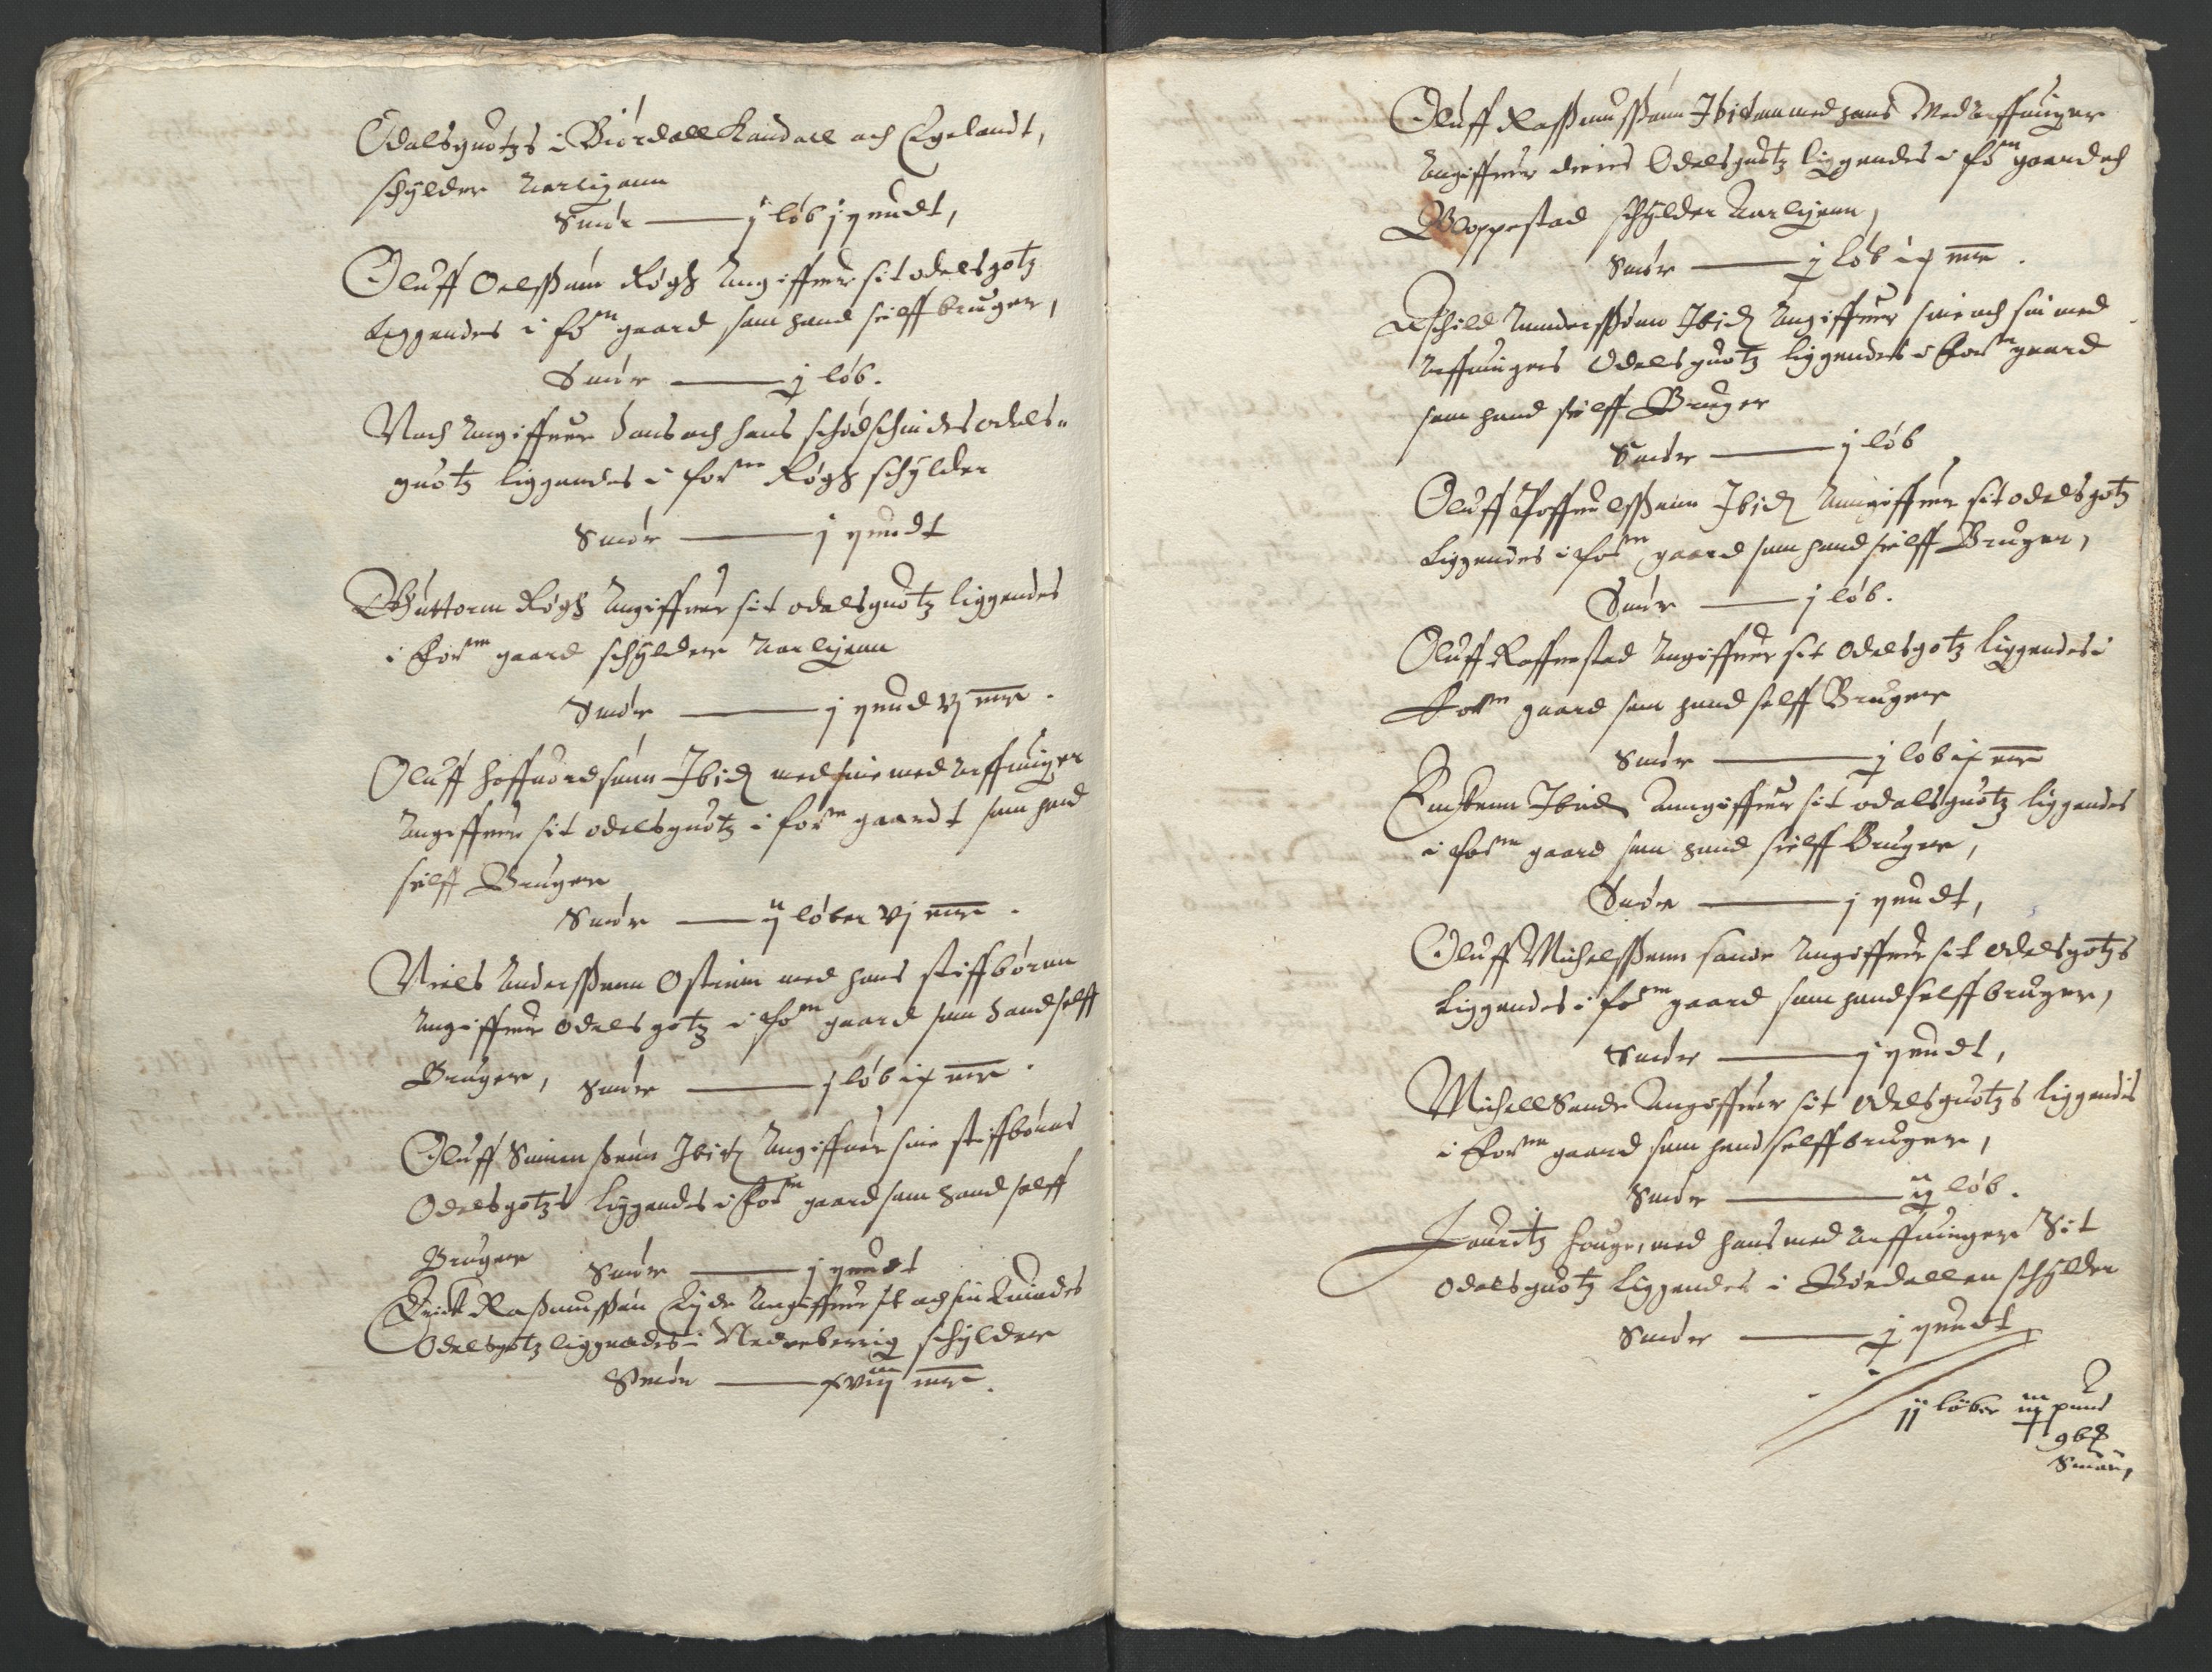 Odalsguotzs i Biórdall Kandall och Egelandt,
schylder Aarligenn
Smór — j løb j pundt,
Oluff Oelssønn Røgh Angiffuer sit odelsgotz
Liggendes i forⁿ gaard som hand selff bruger,
Smór — j løb.
Noch Angiffuer hans och hans odels-
guotz liggendes i forⁿᵉ Røgh schylder
Smór — j pundt
Guttorm Røgh Angiffuer sit odalsguotz liggendes
i Forⁿᵉ gaard schylder Aarligenn
Smór — j pund vj mrr.
Oluff hoffuordsønn Ibid med sine med Arffuinger
Angiffuer sit odelsguotz i forⁿᵉ gaardt som hand
selff Bruger
Smór — ij løber vj mrr.
Niels Anderssønn Osteim med hans stiffbørnn
Angiffuer Odelsgotz i forⁿ gaard som hand selff
Bruger, Smór — j løb ix mrr.
Oluff Simenssønn Ibid Angiffuer sine stiffbørns
Odelsgotzs liggendes i Forⁿ gaard som hand selff
Bruger Smór — j pundt
Erick Rasmussøn Angiffuer sit och sin Quindes
Odelsgotz liggendes i Nedreberrig schylder
Smór — xviij mrr.
Oluff Rassmussønn Ibidem med hans Med Arffuinger
Angiffuer dieris Odelsgutz liggendes i forⁿ gaard och
Gloppestad schylder Aarligenn,
Smór — j løb ix mrr.
Aschild Anderssønn Ibid Angiffuer sine och sin med
Arffuingers Odelsguotz liggendes i Forⁿᵉ gaard
som hand selff Bruger
Smór — j løb
Oluff Poffuelssønn Ibid Anngiffuer sit odelsgotz
Liggendes i forⁿ gaard som hand selff Bruger,
Smór — j løb.
Oluff Raffnestad Angiffuer sit Odelsgotz Liggendes i
Forⁿᵉ gaard som hand selff Bruger
Smór — j løb ix mrr
Ibid Anngiffuer sit odalsguotz liggendes
i forⁿᵉ gaard som hand sielff Bruger,
Smór — j pundt,
Oluff Michelssønn Sande Angiffuer sit odelsgotzs
Liggendes i forⁿᵉ gaard som hand selff bruger,
Smór — j pundt,
Michell Sande Angiffuer sit Odelsguotzs liggendis
i Forⁿᵉ gaard som hand selff bruger,
Smór — ij løb.
Louritz Houge, med hans med Arffuinger Sit
Odelsguotz Liggendes i Børdallen schylder
Smór — j pundt
løber pund
Smør,